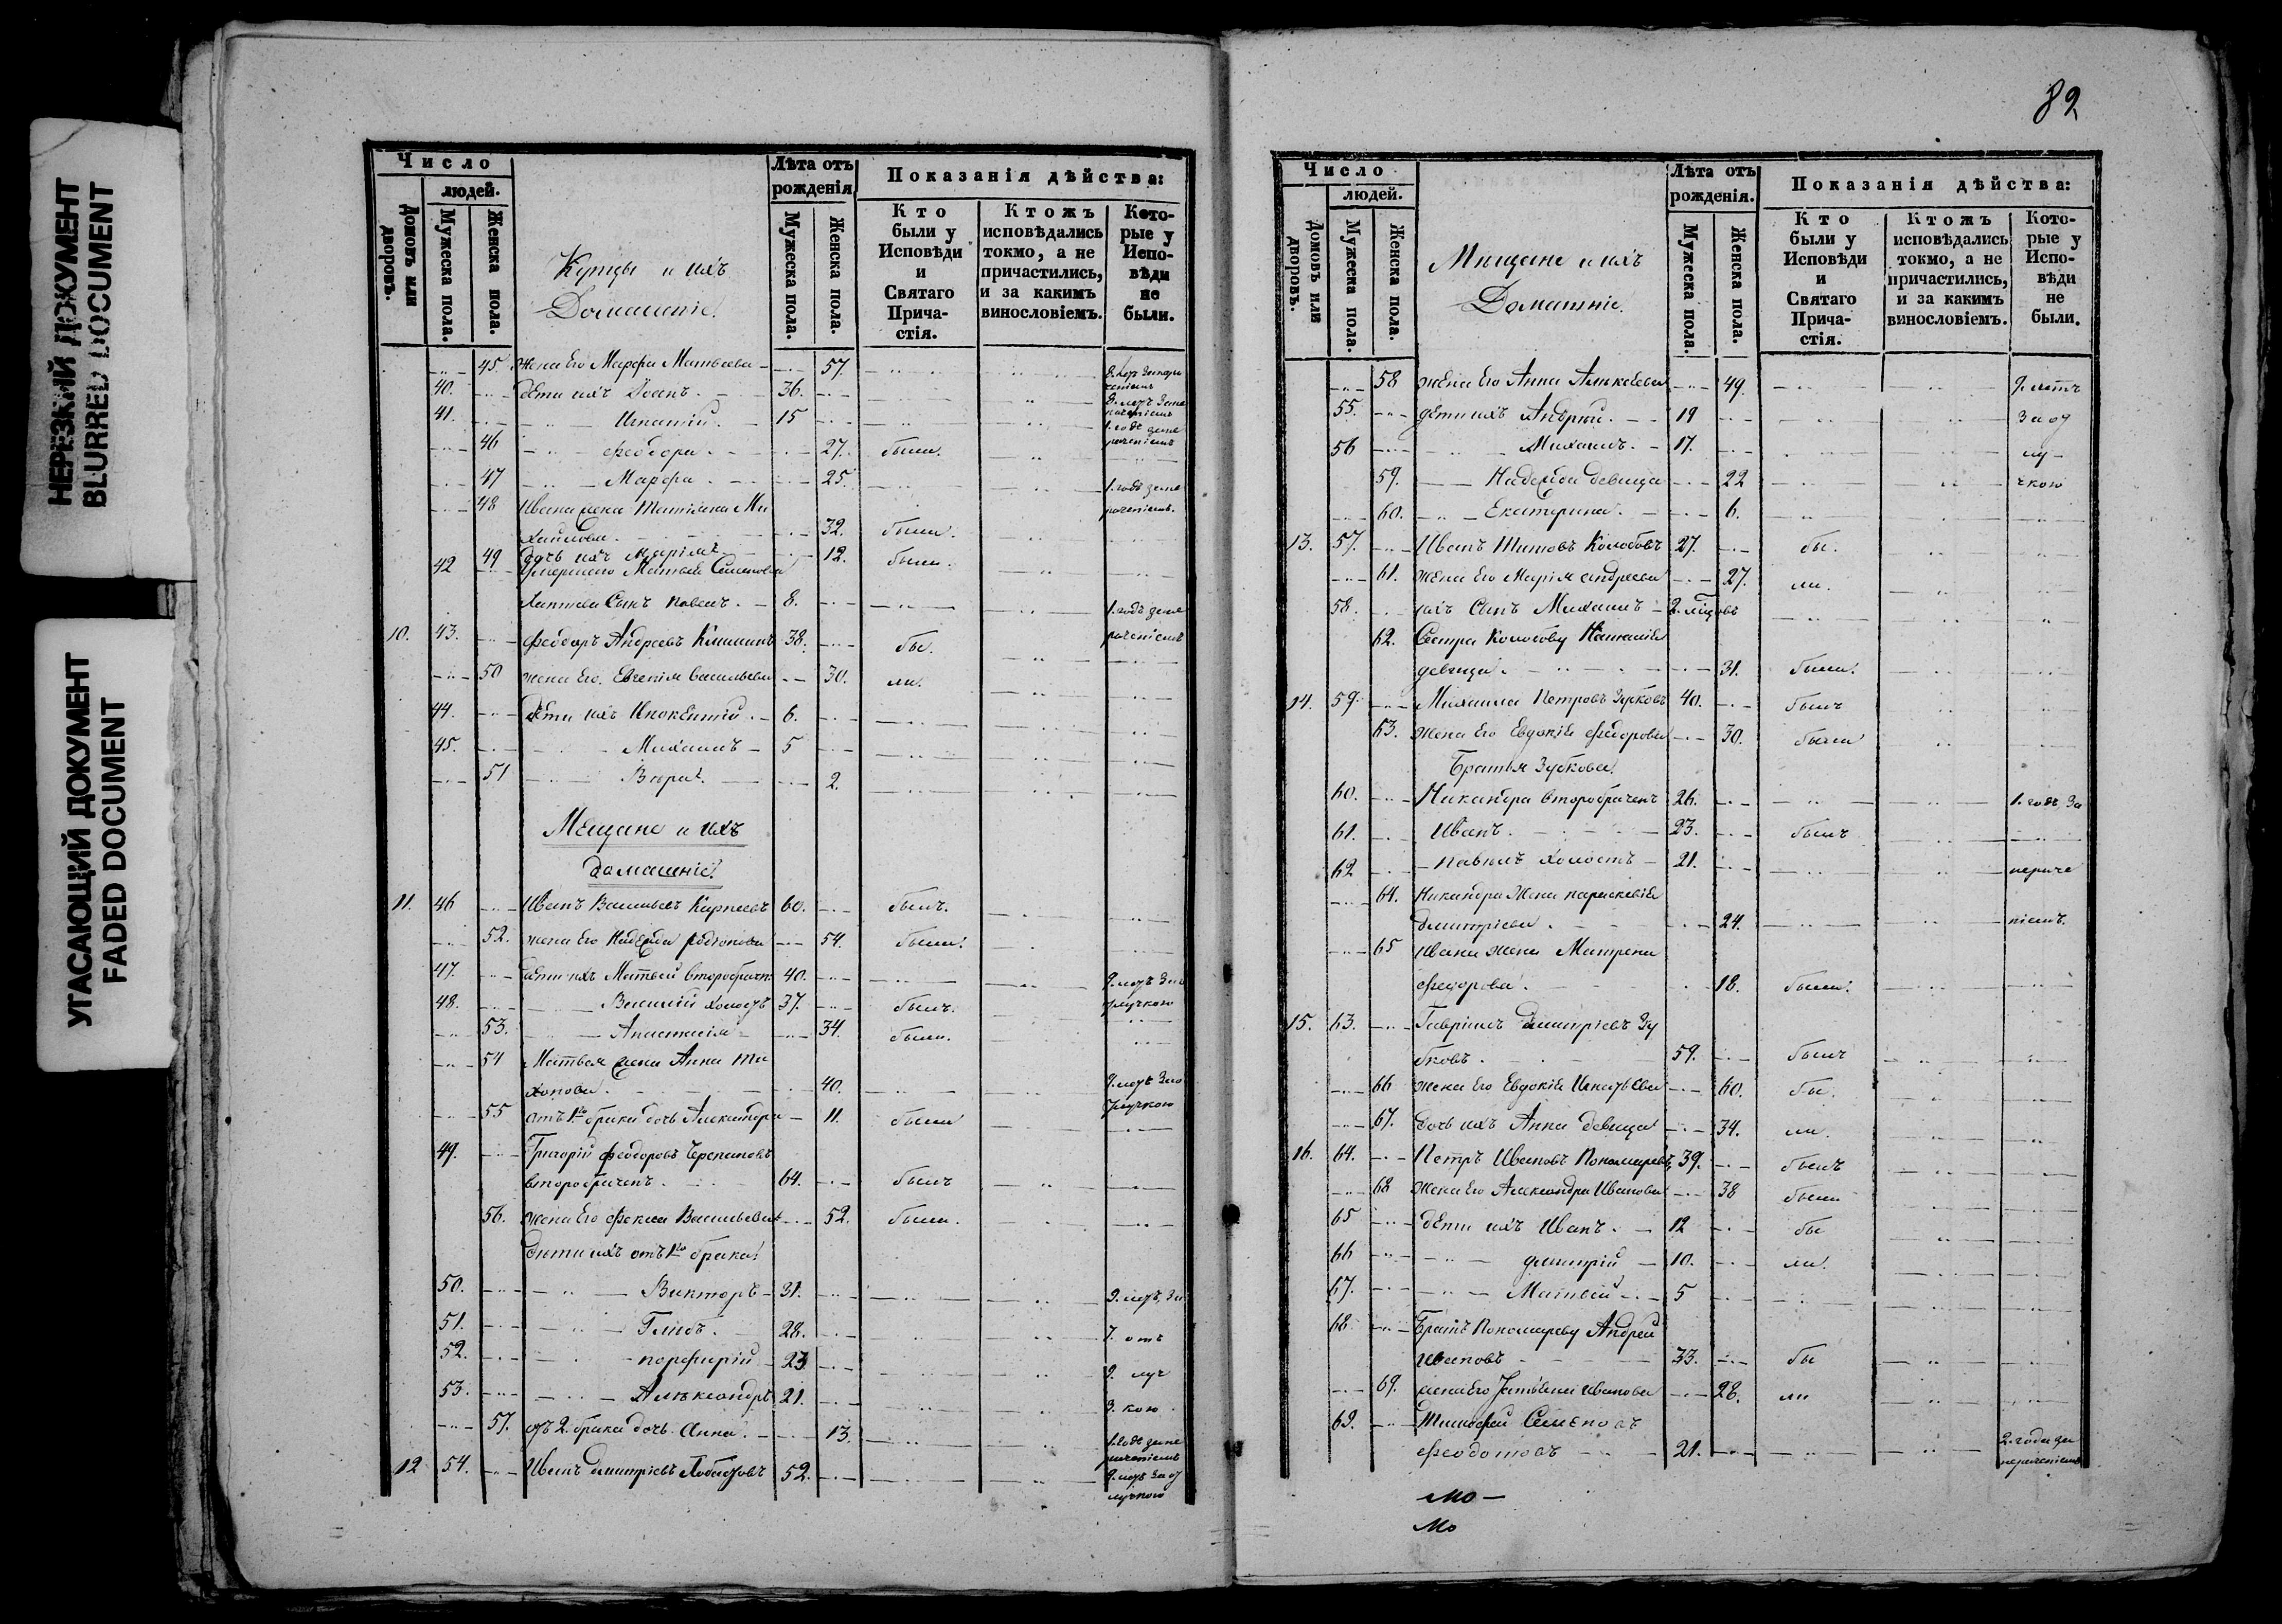 НЕРЕЗКИЙ ДОКУМЕНТ
BLURRED DOCUMENT
УГАСАЮЩИЙ ДОКУМЕНТ
FADED DOCUMENT
Число
людей.
Домовъ или дворовъ.
Мужеска пола.
Женска пола.
Купцы и ихъ
Домашніе.
Лѣта отъ рожденія
Мужеска пола.
Женска пола.
Показанія дѣйства:
Кто были у Исповѣди и Святаго Причастія.
Ктожъ исповѣдались токмо, а не причастились, и за какимъ винословіемъ.
Которые у Исповѣди не были.
45. Жена Его Марфа Матвеева 57.
40. Дѣти ихъ Иоанъ. 36.
41. Игнатій 15
46 Феодора 27. была.
47 Марфа 25. 1. годъ за не
раченіемъ.
48 Ивана жена Татіана Ми
хайлова 32. была.
49 дочь ихъ Марія 12. была.
42 Умершаго Матвея Семенова
сынъ Павелъ. 8. 1. годъ за не
раченіемъ
10. 43. Феодоръ Андреевъ 38. бы.
50 жена Его Евгенія Васильева 30. ли.
44. Дѣти ихъ Инокентій. 6.
45. Михаилъ 5
51 Вѣра 2.
Мещане и ихъ
домашніе.
11. 46 Иванъ Васильевъ Карпеевъ 60. былъ.
52. жена Его Надежда Родіонова 54. была.
47. дѣти ихъ Матвей второбрачн 40. 9. лѣтъ За о
тлучкою
48. Василій холостъ 37. былъ.
53. Анастасія 34. была.
54 Матвея жена Анна Ти
хонова. 40. 9. лѣтъ За о
тлучкою
55 отъ 1го брака дочь Александра 11. была
49. Григорій Феодоровъ Черепановъ
второбраченъ. 64. былъ
56. жена Его Фекла Васильева 52. была.
Дѣти ихъ отъ 1го брака
50. Викторъ 31. 9. лѣтъ, За
51. Глѣбъ. 28. 7. отъ
52. Порфирій 23 9. луч
53. Александръ 21. 3. кою
57. отъ 2. брака дочь Анна. 13. 1. годъ за не
раченіемъ
12 54. Иванъ Дмитріевъ 52. 9. лѣтъ За от
лучкою
82
Число
людей.
Домовъ или дворовъ.
Мужеска пола.
Женска пола.
Мѣщане и ихъ
Домашніе.
Лѣта отъ рожденія.
Мужеска пола.
Женска пола.
Показанія дѣйства:
Кто были у Исповѣди и Святаго Причастія.
Ктожъ исповѣдались токмо, а не причастились, и за какимъ винословіемъ.
Которые у Исповѣди не были.
58 жена Его Анна Алексеева 49. 9. лѣтъ
55. дѣти ихъ Андрей. 19 За от
56 Михаилъ. 17. лу
59. Надежда девица 22 чкою
60. Екатерина. 6.
13. 57. Иванъ Титовъ Колобовъ 27. бы.
61. жена Его Марія Андреева 27. ли.
58. ихъ сынъ Михаилъ 2. годовъ
62. Сестра Колобову Наталія
девица. 31. была.
14. 59. Михаила Петровъ Зубковъ 40. былъ
63. жена Его Евдокія Федорова 30. была
Братья Зубкова.
60. Никандра второбраченъ 26. 1. годъ за
61. Иванъ. 23. былъ
62 Павелъ холостъ 21. нераче
64. Никандра жена Параскевія
Дмитріева 24. ніемъ.
65 Ивана жена Матрена
Федорова 18. была.
15. 63. Гавріилъ Дмитріевъ Зу
бковъ. 59. былъ
66 жена Его Евдокія Игнатьева 60. бы.
67. дочь ихъ Анна девица 34. ли.
16. 64. Петръ Ивановъ Пономаревъ 39. былъ
68 жена Его Александра Иванова 38 была
65 дѣти ихъ Иванъ. 12 бы
66 Дмитрій 10. ли.
67. Матвей 5
68 Братъ Пономареву Андрей
Ивановъ 33. бы
69. жена Его Татіана Иванова 28. ли
69. Тимофей Семеновъ
Феодотовъ 21. 2. года за
нераченіемъ
Мо—
Мо